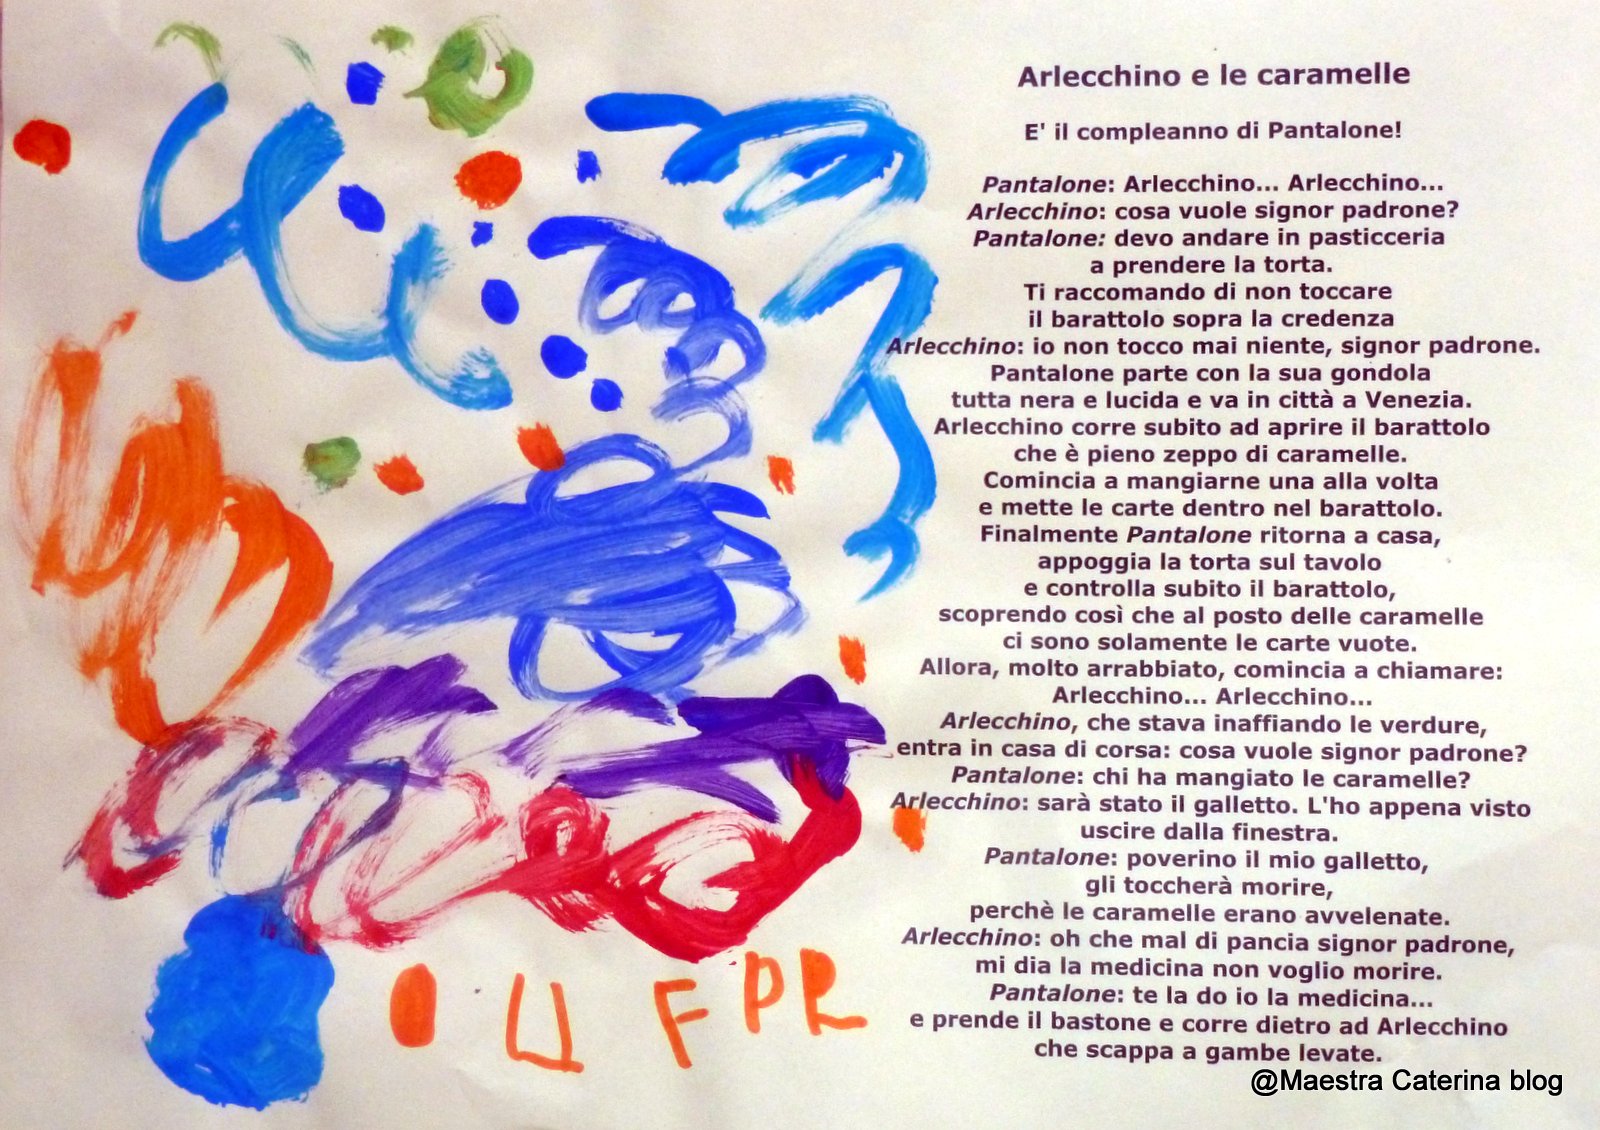 Arlecchino e le caramelle
E' il compleanno di Pantalone!
Pantalone: Arlecchino... Arlecchino...
Arlecchino: cosa vuole signor padrone?
Pantalone: devo andare in pasticceria
a prendere la torta.
Ti raccomando di non toccare
il barattolo sopra la credenza
Arlecchino: io non tocco mai niente, signor padrone.
Pantalone parte con la sua gondola
tutta nera e lucida e va in città a Venezia.
Arlecchino corre subito ad aprire il barattolo
che è pieno zeppo di caramelle.
Comincia a mangiarne una alla volta
e mette le carte dentro nel barattolo.
Finalmente Pantalone ritorna a casa,
appoggia la torta sul tavolo
e controlla subito il barattolo,
scoprendo così che al posto delle caramelle
ci sono solamente le carte vuote.
Allora, molto arrabbiato, comincia a chiamare:
Arlecchino... Arlecchino...
Arlecchino, che stava inaffiando le verdure,
entra in casa di corsa: cosa vuole signor padrone?
Pantalone: chi ha mangiato le caramelle?
Arlecchino: sarà stato il galletto. L'ho appena visto
uscire dalla finestra.
Pantalone: poverino il mio galletto,
gli toccherà morire,
perchè le caramelle erano avvelenate.
Arlecchino: oh che mal di pancia signor padrone,
mi dia la medicina non voglio morire.
Pantalone: te la do io la medicina...
e prende il bastone e corre dietro ad Arlecchino
che scappa a gambe levate.
@Maestra Caterina blog